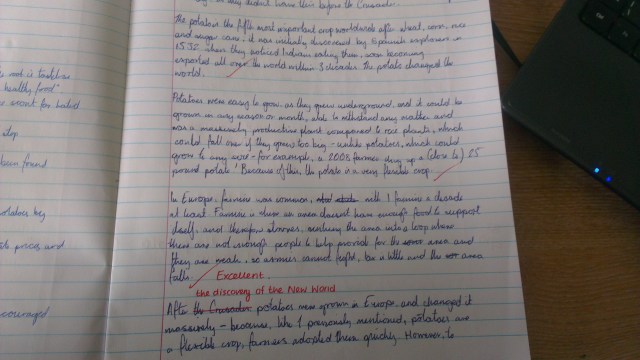 they didn't have this before the Crusades.
The potato is the fifth most important crop worldwide after wheat, corn, rice
and sugar cane. it was initially discovered by Spanish explorers in
1532 when they noticed Indians eating them, soon becoming
exported all over the world within 3 decades. The potato changed the
world.
Potatoes were easy to grow, as they grew underground, and it could be
grown in any season or month, able to withstand any weather and
was a massively productive plant compared to rice plants, which
could fall over if they grew too big - unlike potatoes, which could
grow to any size - for example, a 2008 farmer dug up a (close to) 25
pound potato! Because of this, the potato is a very flexible crop.
In Europe, famine was common, with 1 famine a decade
at least. Famine is when an area doesn't have enough food to support
itself, and therefore starves, sending the area into a loop where
there are not enough people to help provide for the area and
they are weak, so armies cannot fight, be a little and the area
falls.
Excellent.
the discovery of the New World
After the Crusades potatoes were grown in Europe, and changed it
massively - because, like I previously mentioned, potatoes are
a flexible crop, farmers adopted them quickly. However, to
healthy food"
stop
been found
potatoes by
prices and
encouraged